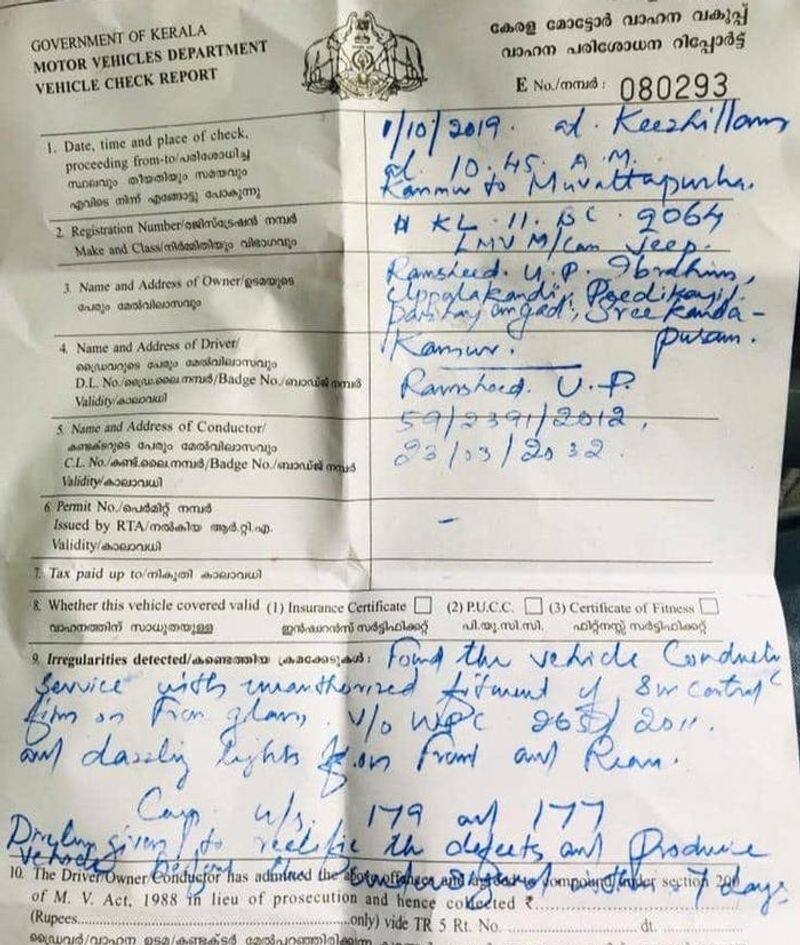 GOVERNMENT OF KERALA
MOTOR VEHICLES DEPARTMENT
VEHICLE CHECK REPORT
കേരള മോട്ടോർ വാഹന വകുപ്പ്
വാഹന പരിശോധന റിപ്പോർട്ട്
E No./നമ്പർ : 080293
1. Date, time and place of check,
proceeding from-to/പരിശോധിച്ച
സ്ഥലവും തിയതിയും സമയവും
എവിടെ നിന്ന് എങ്ങോട്ടു പോകുന്നു
1/10/2019. at. Keezhillam
at. 10.45. A.M.
Kannur to Muvattapuzha.
2. Registration Number/രജിസ്ട്രേഷൻ നമ്പർ
Make and Class/നിർമ്മിതിയും വിഭാഗവും
KL.11.BC.9064
LMV M/Cam Jeep.
3. Name and Address of Owner/ഉടമയുടെ
പേരും മേൽവിലാസവും
Ramsheed. U.P. Ibrahim,
Uppalakandi, Peedikayil,
angadi, Sreekanda-
Kannur. puram.
4. Name and Address of Driver/
ഡ്രൈവറുടെ പേരും മേൽവിലാസവും
D.L. No./ഡ്രൈ.ലൈ.നമ്പർ/Badge No./ബാഡ്ജ് നമ്പർ
Validity/കാലാവധി
Ramsheed. U.P.
59/2391/2012,
23/03/2032.
5. Name and Address of Conductor/
കണ്ടക്ടറുടെ പേരും മേൽവിലാസവും
C.L. No./കണ്ട്.ലൈ.നമ്പർ/Badge No./ബാഡ്ജ് നമ്പർ
Validity/കാലാവധി
6. Permit No./പെർമിറ്റ് നമ്പർ
Issued by RTA/നൽകിയ ആർ.റ്റി.എ.
Validity/കാലാവധി
–
7. Tax paid up to/നികുതി കാലാവധി
8. Whether this vehicle covered valid (1) Insurance Certificate (2) P.U.C.C. (3) Certificate of Fitness
വാഹനത്തിന് സാധുതയുള്ള ഇൻഷുറൻസ് സർട്ടിഫിക്കറ്റ് പി.യു.സി.സി. ഫിറ്റ്നസ്സ് സർട്ടിഫിക്കറ്റ്
9. Irregularities detected/കണ്ടെത്തിയ ക്രമക്കേടുകൾ : Found the vehicle Conduct
Service with unauthorized fitment of Sun Control
film on Fron glass. V/O WPC 265/2011.
and dazzling lights on Front and Rear.
u/s. 179 and 177
given to rectifie the defects and Produce
vehicle 7 days
10. The Driver/Owner/Conductor has admitted the above offences and agreed to compound under section 200
of M. V. Act, 1988 in lieu of prosecution and hence collected ₹
(Rupees only) vide TR 5 Rt. No. dt.
ഡ്രൈവർ/വാഹന ഉടമ/കണ്ടക്ടർ മേൽപറഞ്ഞിരിക്കുന്ന